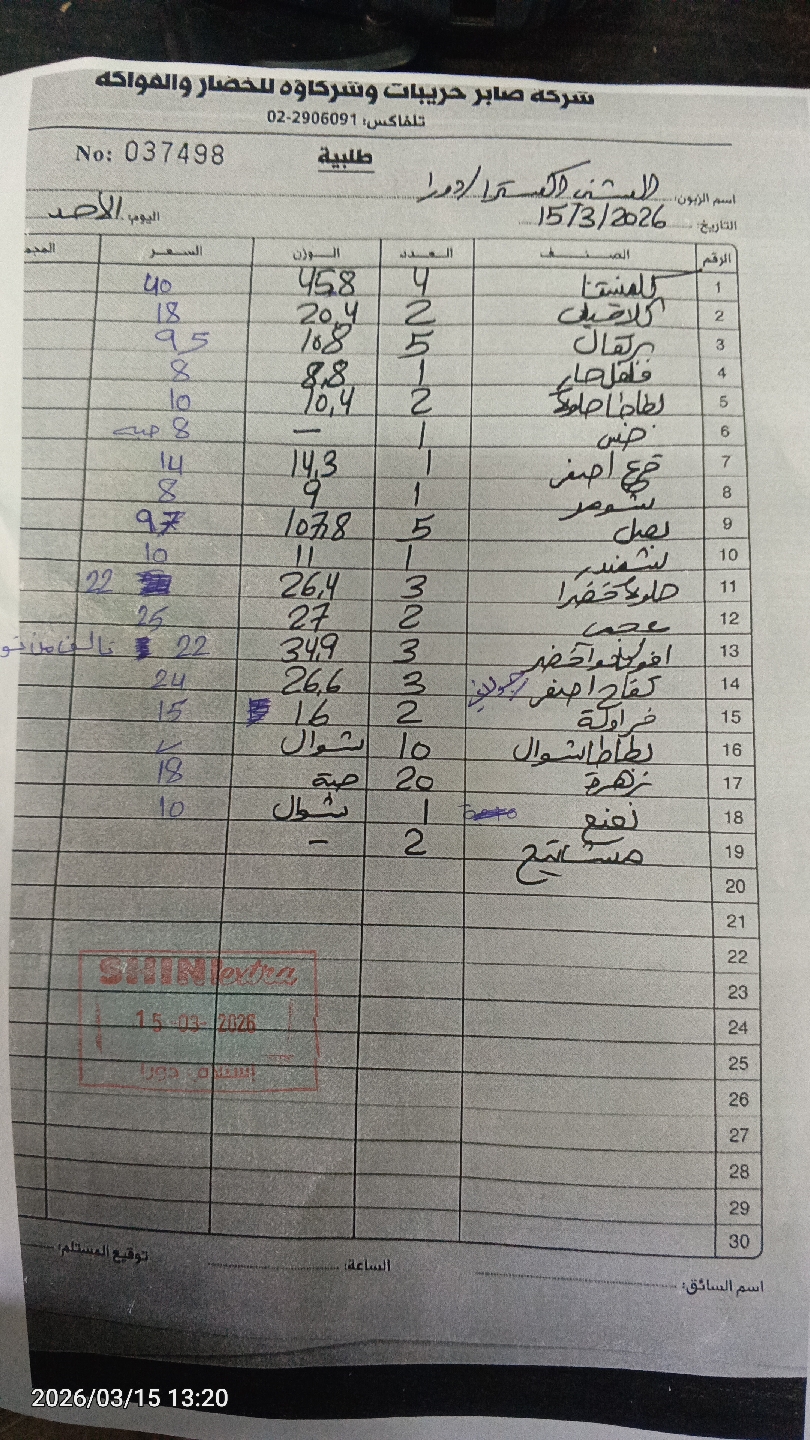 شركة صابر حريبات وشركاؤه للخضار والفواكه
تلفاكس: 02-2906091
No: 037498 طلبية
اسم الزبون: الشني اكسترا / دورا
التاريخ: 15/3/2026 اليوم: الأحد
الرقم الصنف العدد الوزن السعر
1 كلمنتنا 4 45,8 40
2 2 20,4 18
3 برتقال 5 108 95
4 فلفل حار 1 8,8 8
5 بطاطا حلوة 2 10,4 10
6 خس 1 — 8 حبه
7 قرع اصفر 1 14,3 14
8 شومر 1 9 8
9 بصل 5 107,8 97
10 شمندر 1 11 10
11 خضرا 3 26,4 22
12 عجمي 2 27 25
13 افوكادو اخضر 3 34,9 22 تالف من
14 تفاح اصفر 3 26,6 24
15 فراولة 2 16 15
16 بطاطا شوال 10 شوال
17 زهرة 20 حبة 18
18 نعنع 1 شوال 10
19 مشاتيح 2 –
20
21
22
23
24
25
26
27
28
29
30
SHINI extra
15 03 2026
دورا
اسم السائق: الساعة: توقيع المستلم:
2026/03/15 13:20